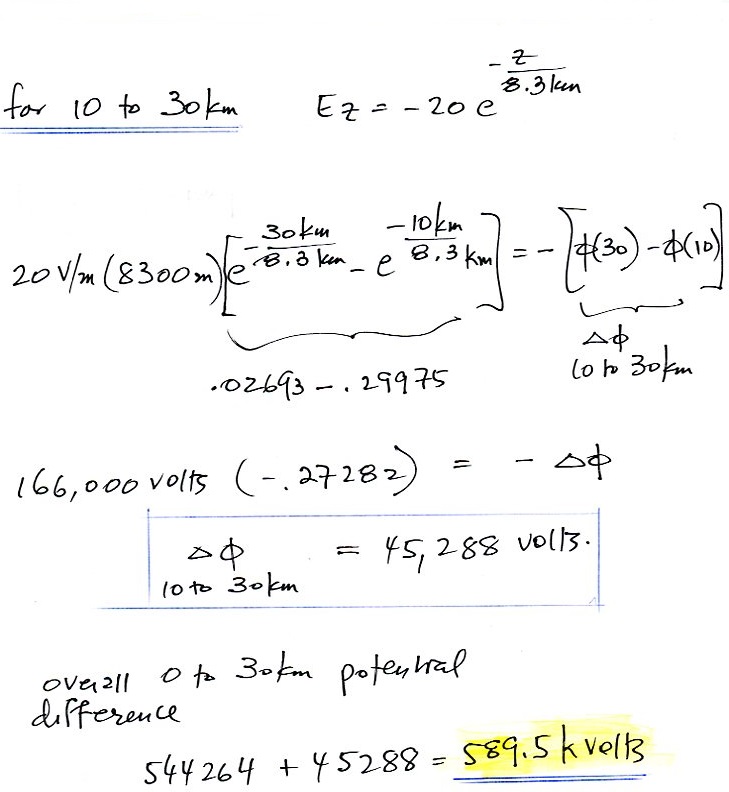 for 10 to 30km Ez = -20 e^(-z/8.3km)
20 V/m (8300m) [e^(-30km/8.3km) - e^(-10km/8.3km)] = - [ϕ(30) - ϕ(10)]
.02693 - .29975
Δϕ
10 to 30km
166,000 volts (-.27282) = - Δϕ
Δϕ = 45,288 volts.
10 to 30km
overall 0 to 30km potential
difference
544264 + 45288 = 589.5 k volts